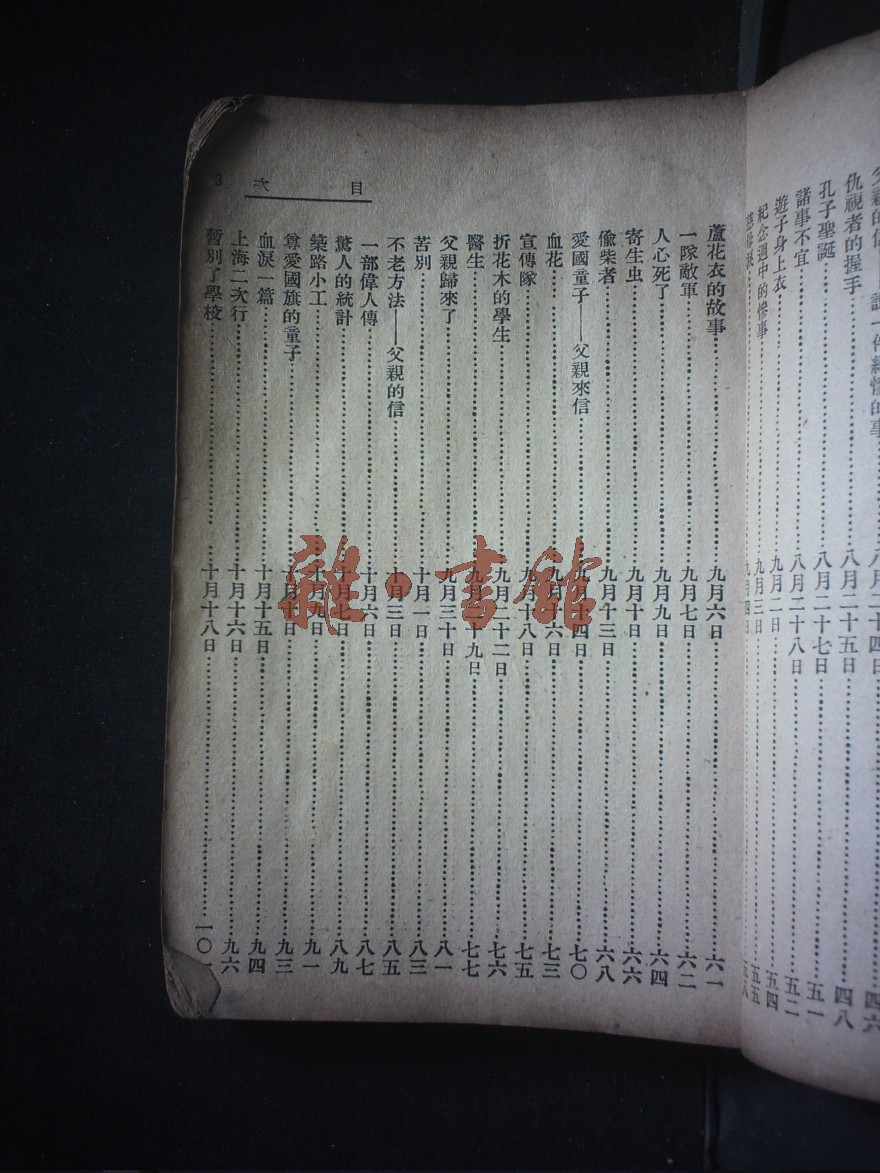 父親的信——
八月二十四日 四六
仇視者的握手……八月二十五日……四八
孔子聖誕……八月二十七日……五一
諸事不宜……八月二十八日……五二
遊子身上衣……九月二日……五四
紀念週中的慘事……九月三日……五五
九月四日
目次 3
蘆花衣的故事……九月六日……六一
一隊敵軍……九月七日……六二
人心死了……九月九日……六四
寄生虫……九月十日……六六
偷柴者……九月十三日……六八
愛國童子——父親來信……九月十四日……七〇
血花……九月十六日……七三
宣傳隊……九月十八日……七五
折花木的學生……九月二十二日……七六
醫生……九月二十九日……七七
父親歸來了……九月三十日……八一
苦別……十月一日……八三
不老方法——父親的信……十月三日……八五
一部偉人傳……十月六日……八七
驚人的統計……十月七日……八九
築路小工……十月九日……九一
尊愛國旗的童子……十月十日……九三
血淚一篇……十月十五日……九四
上海二次行……十月十六日……九六
暫別了學校……十月十八日……一〇
雜·書館